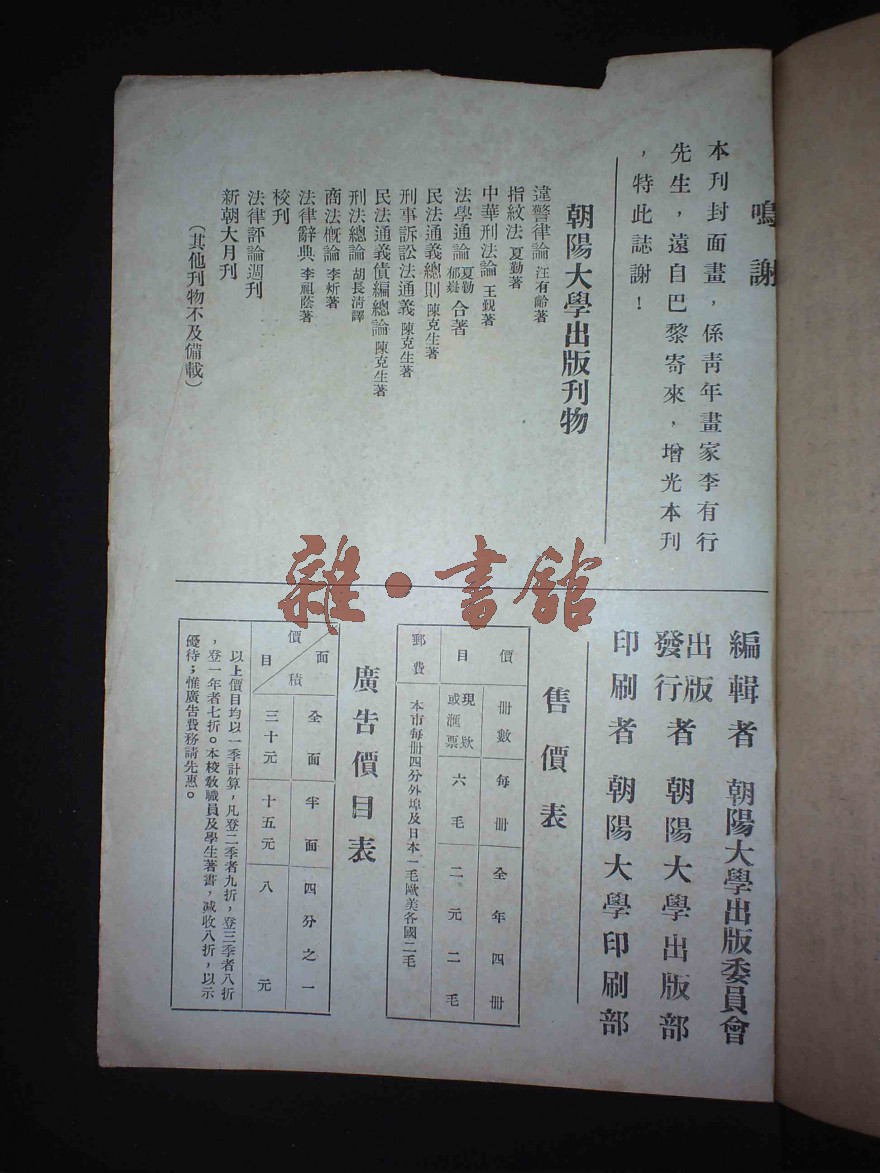 鳴謝
本刊封面畫，係青年畫家李有行
先生，遠自巴黎寄來，增光本刊
，特此誌謝！
朝陽大學出版刊物
違警律論 汪有齡著
指紋法 夏勤著
中華刑法論 王覲著
法學通論 夏勤 郁嶷 合著
民法通義總則 陳克生著
刑事訴訟法通義 陳克生著
民法通義債編總論 陳克生著
刑法總論 胡長淸譯
商法概論 李炘著
法律辭典 李祖蔭著
校刊
法律評論週刊
新朝大月刊
（其他刊物不及備載）
編輯者 朝陽大學出版委員會
出版發行者 朝陽大學出版部
印刷者 朝陽大學印刷部
售價表
價目 冊數 每冊 全年四冊
現欵或滙票 六毛 二元二毛
郵費 本市每冊四分外埠及日本一毛歐美各國二毛
廣告價目表
面積 全面 半面 四分之一
價目 三十元 十五元 八元
以上價目均以一季計算，凡登二季者九折，登三季者八折
，登一年者七折。本校教職員及學生著書，減收八折，以示
優待；惟廣告費務請先惠。
雜·書館